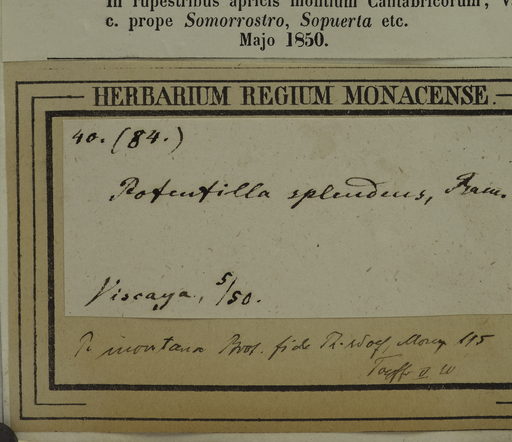 In rupestribus apricis montium Cantabricorum, V
c. prope Somorrostro, Sopuerta etc.
Majo 1850.
HERBARIUM REGIUM MONACENSE.
40. (84.)
Potentilla splendens, Ram.
Viscaya, 5/50.
P. montana Brot. fide Th. Wolf, Monog 115